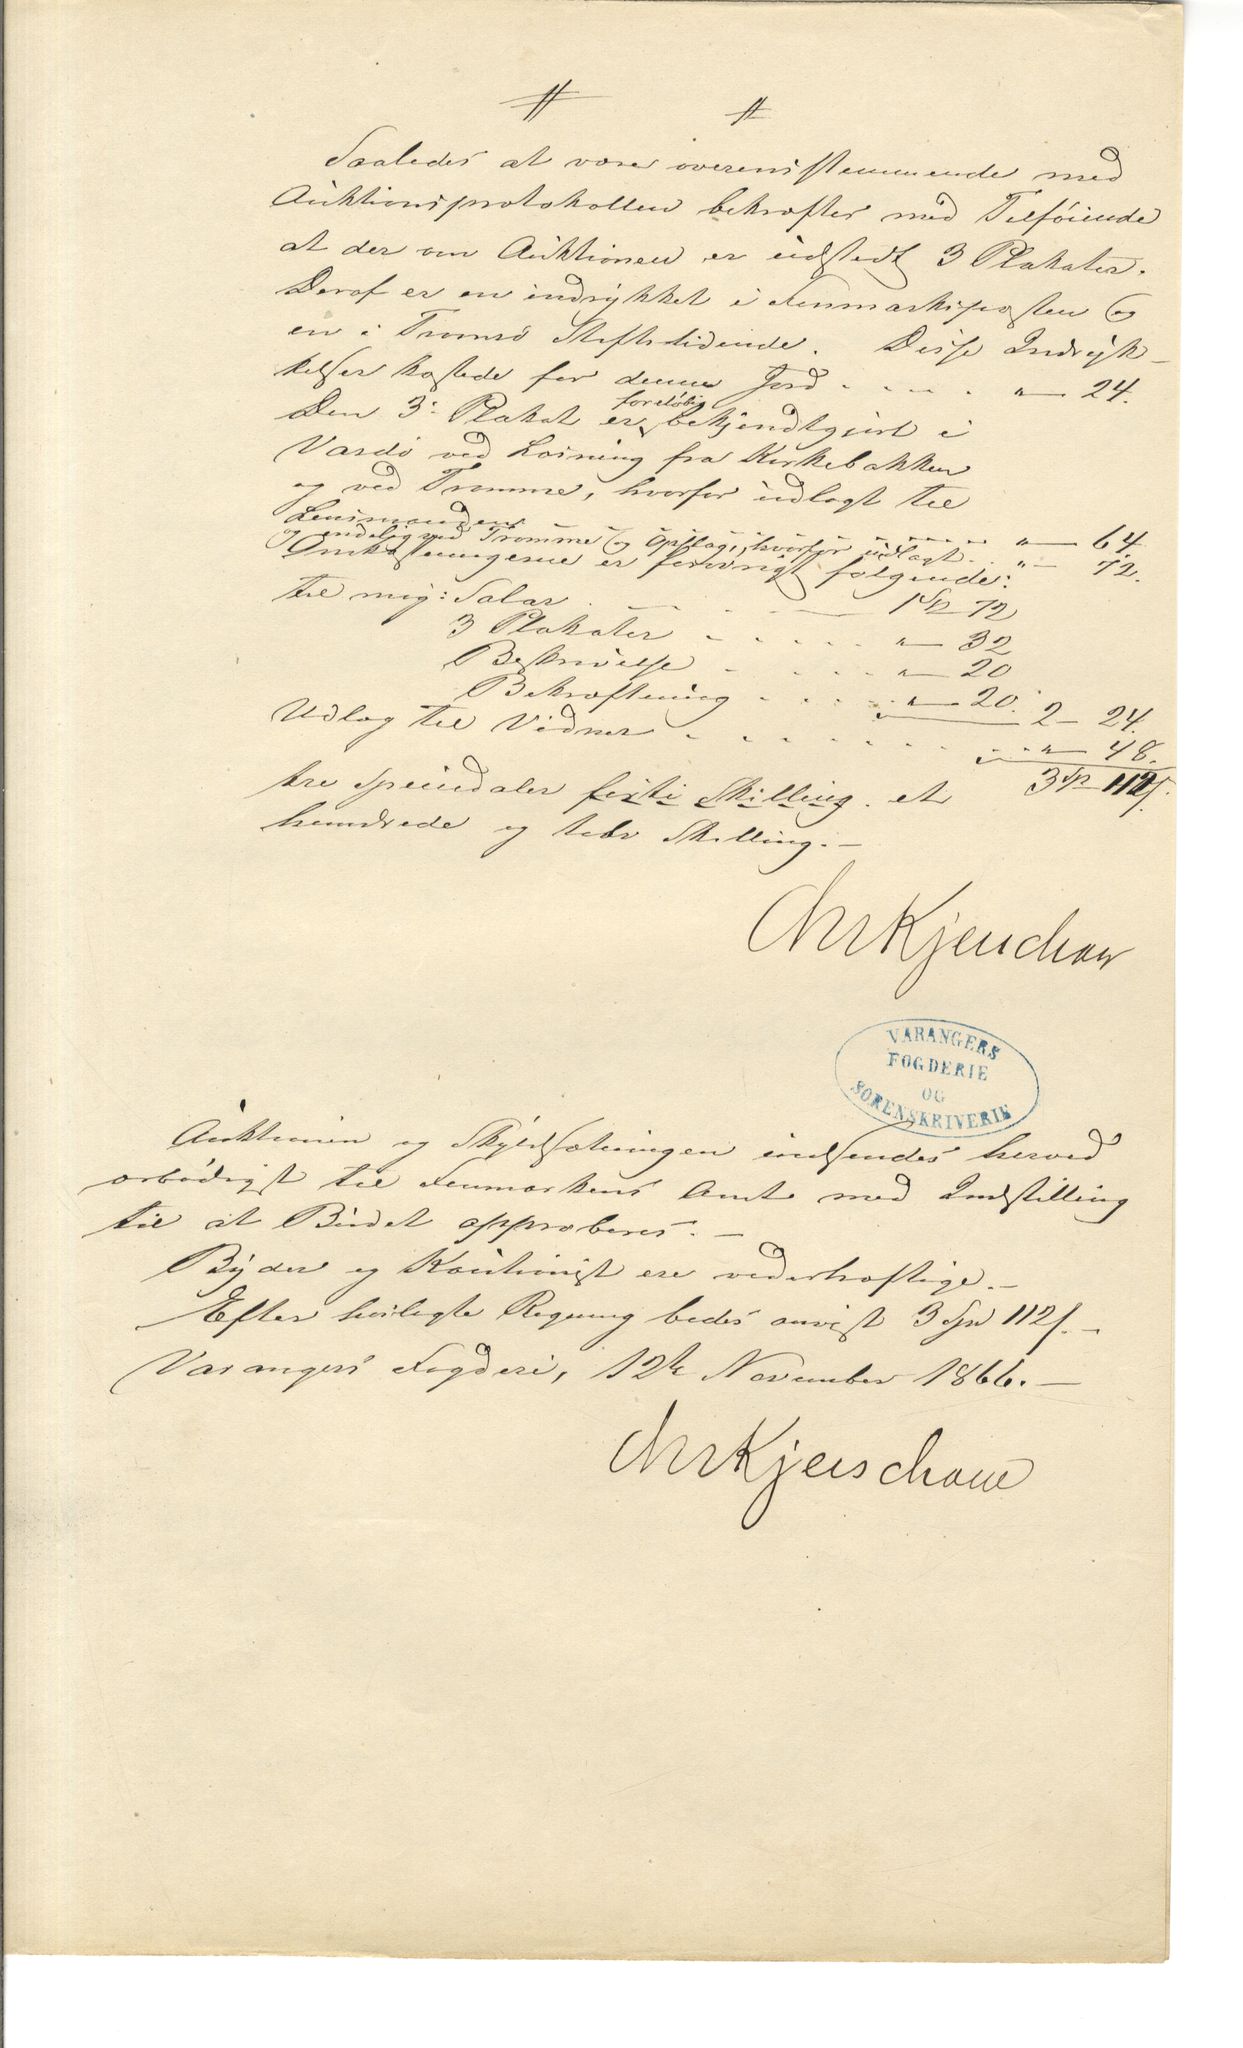 Saaledes at være overensstemmende med
Auktionsprotokollen bekræftes med Tilføiende
at der om Auktionen er udstedt 3 Plakater.
Deraf er en indrykket i Finmarksposten og
en i Tromsø Stiftstidende. Disse Indryk-
kelser kostede for denne Jord . . . . " — 24.
Den 3: Plakat er foreløbig bekjendtgjort i
Vardø ved Læsning fra Kirkebakken
og ved Tromme, hvorfor udlagt til
Lensmanden . . . . . . " — 64
og endelig ved Tromme og Opslag, hvorfor udlagt . . " — 72.
Omkostningerne er forøvrigt følgende:
til mig: Salær . . . . 1 Sp 72
3 Plakater . . . . . " — 32
Beskrivelse . . . . . " — 20
Bekræftning . . . . . " — 20. 2 — 24.
Udlag til Vidner . . . . . . . . . " — 48.
3 Sp 112 s.
tre Speciedaler forti Skilling. et
hundrede og tolv Skilling. —
Chr Kjerschow
VARANGERS
FOGDERIE
OG
SORENSKRIVERIE
Auktionen og Skyldsætningen indsendes herved
ærbødigst til Finmarkens Amt med Indstilling
til at Budet approberes. —
Byder og Kautionist ere vederhæftige. —
Efter hoslagte Regning bedes anvist 3 Spd 112 s. —
Varangers Fogderi, 12te November 1866. —
Chr Kjerschow